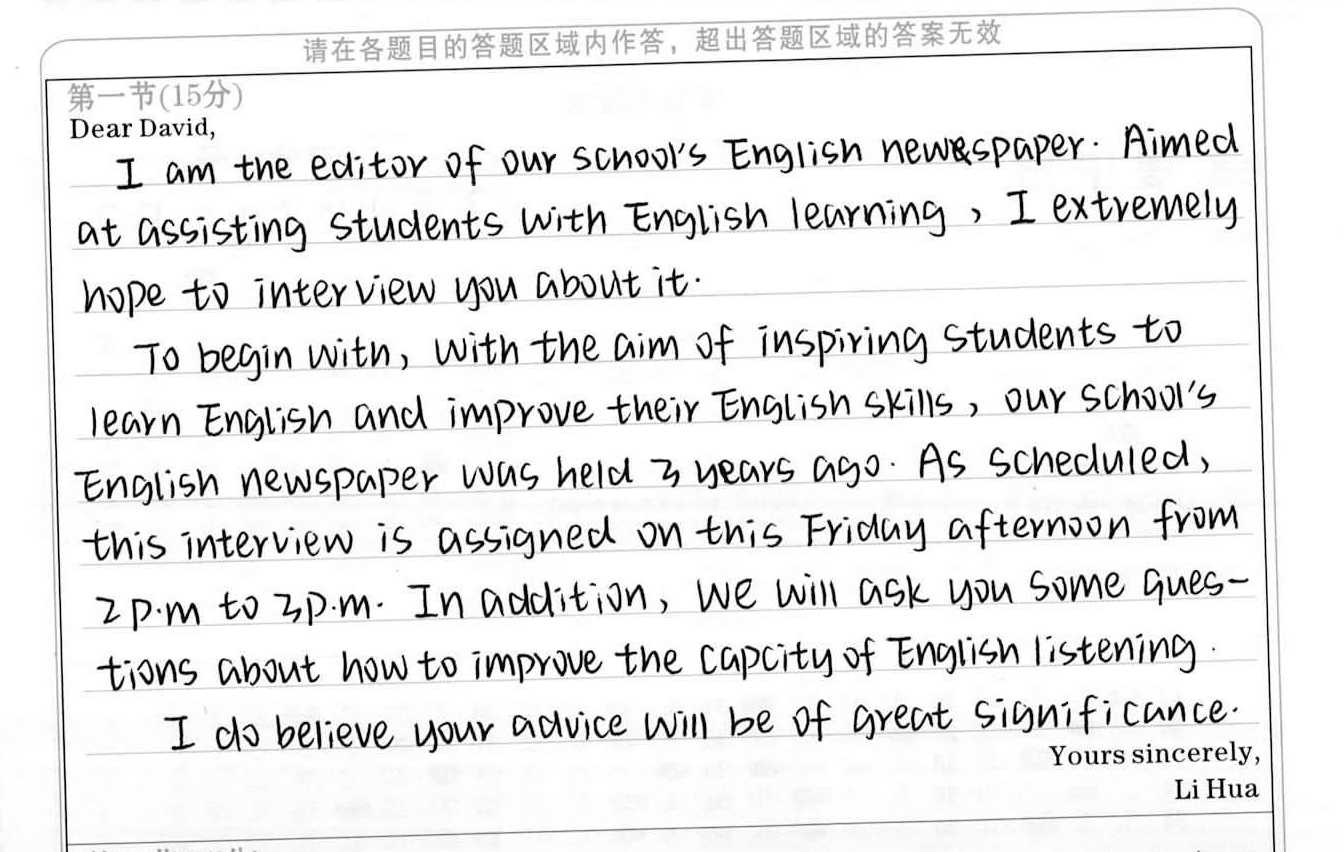 请在各题目的答题区域内作答，超出答题区域的答案无效
第一节(15分)
Dear David,
I am the editor of our school's English newspaper. Aimed
at assisting students with English learning, I extremely
hope to interview you about it.
To begin with, with the aim of inspiring students to
learn English and improve their English skills, our school's
English newspaper was held 3 years ago. As scheduled,
this interview is assigned on this Friday afternoon from
2p.m to 3p.m. In addition, we will ask you some ques-
tions about how to improve the capcity of English listening.
I do believe your advice will be of great significance.
Yours sincerely,
Li Hua